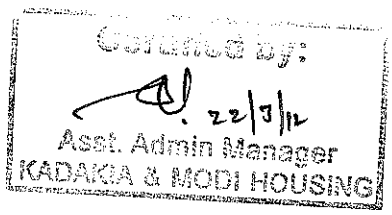 Certified by:
22/3/12
Asst. Admin Manager
KADAKIA & MODI HOUSING